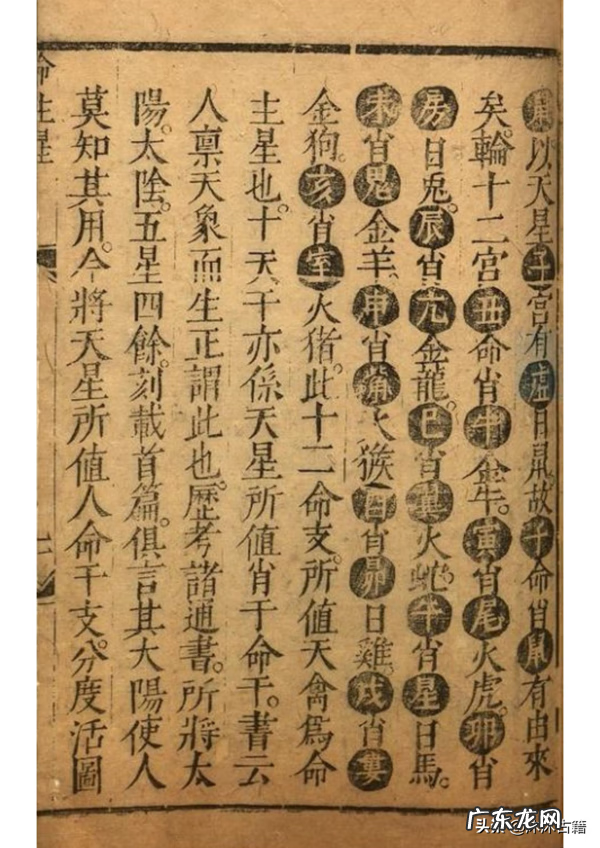 以天星子宮有虛日鼠故子命肖鼠有由來
矣。輪十二宮丑命肖牛金牛。寅肖尾火虎。卯肖
房日兎。辰肖亢金龍。巳肖翼火蛇。午肖星日馬。
未肖鬼金羊。申肖觜火猴。酉肖昴日雞。戌肖婁
金狗。亥肖室火猪。此十二命支。所值天禽爲命
主星也。十天干亦係天星所值肖于命干。書云
人禀天象而生正謂此也。歷考諸通書。所將太
陽。太陰。五星四餘。刻載首篇。俱言其大陽使人
莫知其用。今將天星所值人命干支。分度活圖
命主星
广东龙网
头 古籍